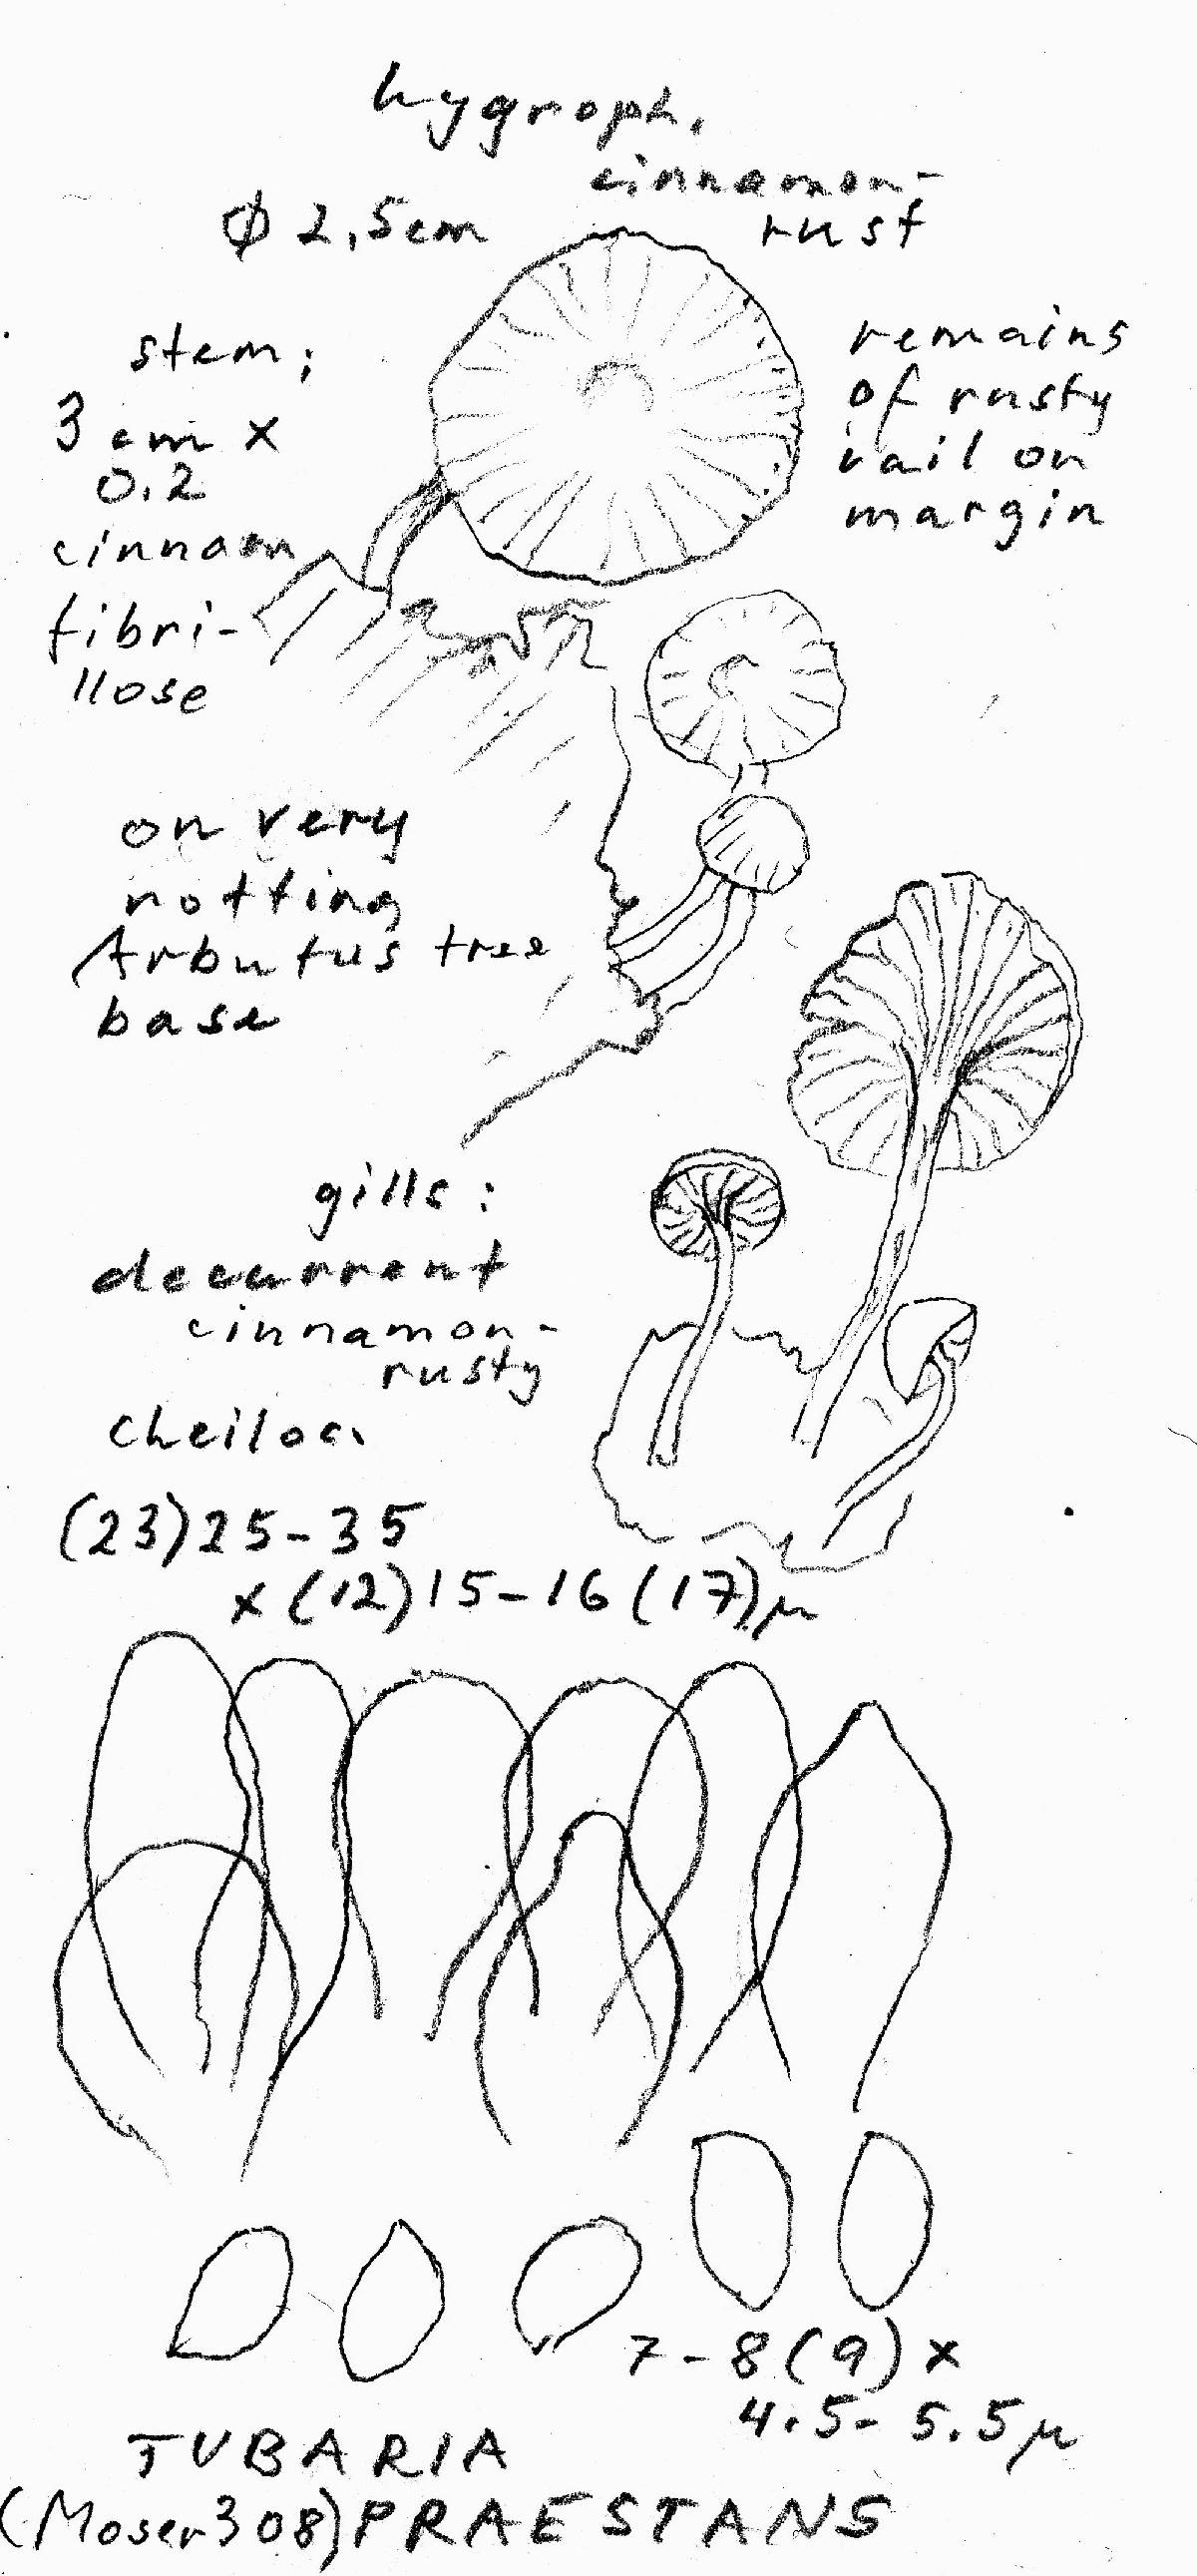 hygroph.
cinnamon-
rust
Ø 2,5cm
stem;
3 cm x
0.2
cinnam
fibri-
llose
remains
of rusty
vail on
margin
on very
rotting
Arbutus tree
base
gills:
decurrent
cinnamon-
rusty
cheiloc.
(23)25-35
x (12)15-16(17)µ
7-8(9)x
4.5-5.5µ
TUBARIA
(Moser308)PRAESTANS